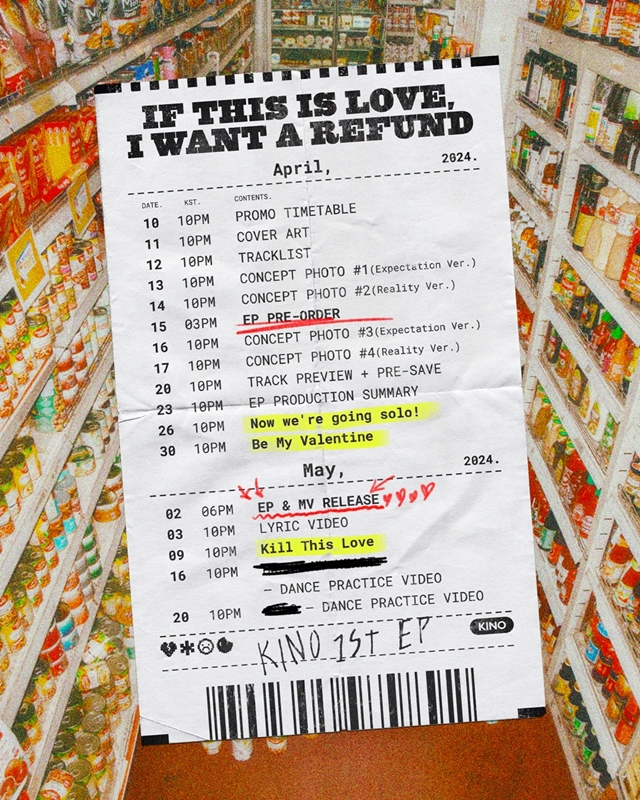 IF THIS IS LOVE,
I WANT A REFUND
April, 2024.
DATE. KST. CONTENTS.
10 10PM PROMO TIMETABLE
11 10PM COVER ART
12 10PM TRACKLIST
13 10PM CONCEPT PHOTO #1(Expectation Ver.)
14 10PM CONCEPT PHOTO #2(Reality Ver.)
15 03PM EP PRE-ORDER
16 10PM CONCEPT PHOTO #3(Expectation Ver.)
17 10PM CONCEPT PHOTO #4(Reality Ver.)
20 10PM TRACK PREVIEW + PRE-SAVE
23 10PM EP PRODUCTION SUMMARY
26 10PM Now we're going solo!
30 10PM Be My Valentine
May, 2024.
02 06PM EP & MV RELEASE
03 10PM LYRIC VIDEO
09 10PM Kill This Love
16 10PM
- DANCE PRACTICE VIDEO
20 10PM - DANCE PRACTICE VIDEO
KINO 1ST EP KINO